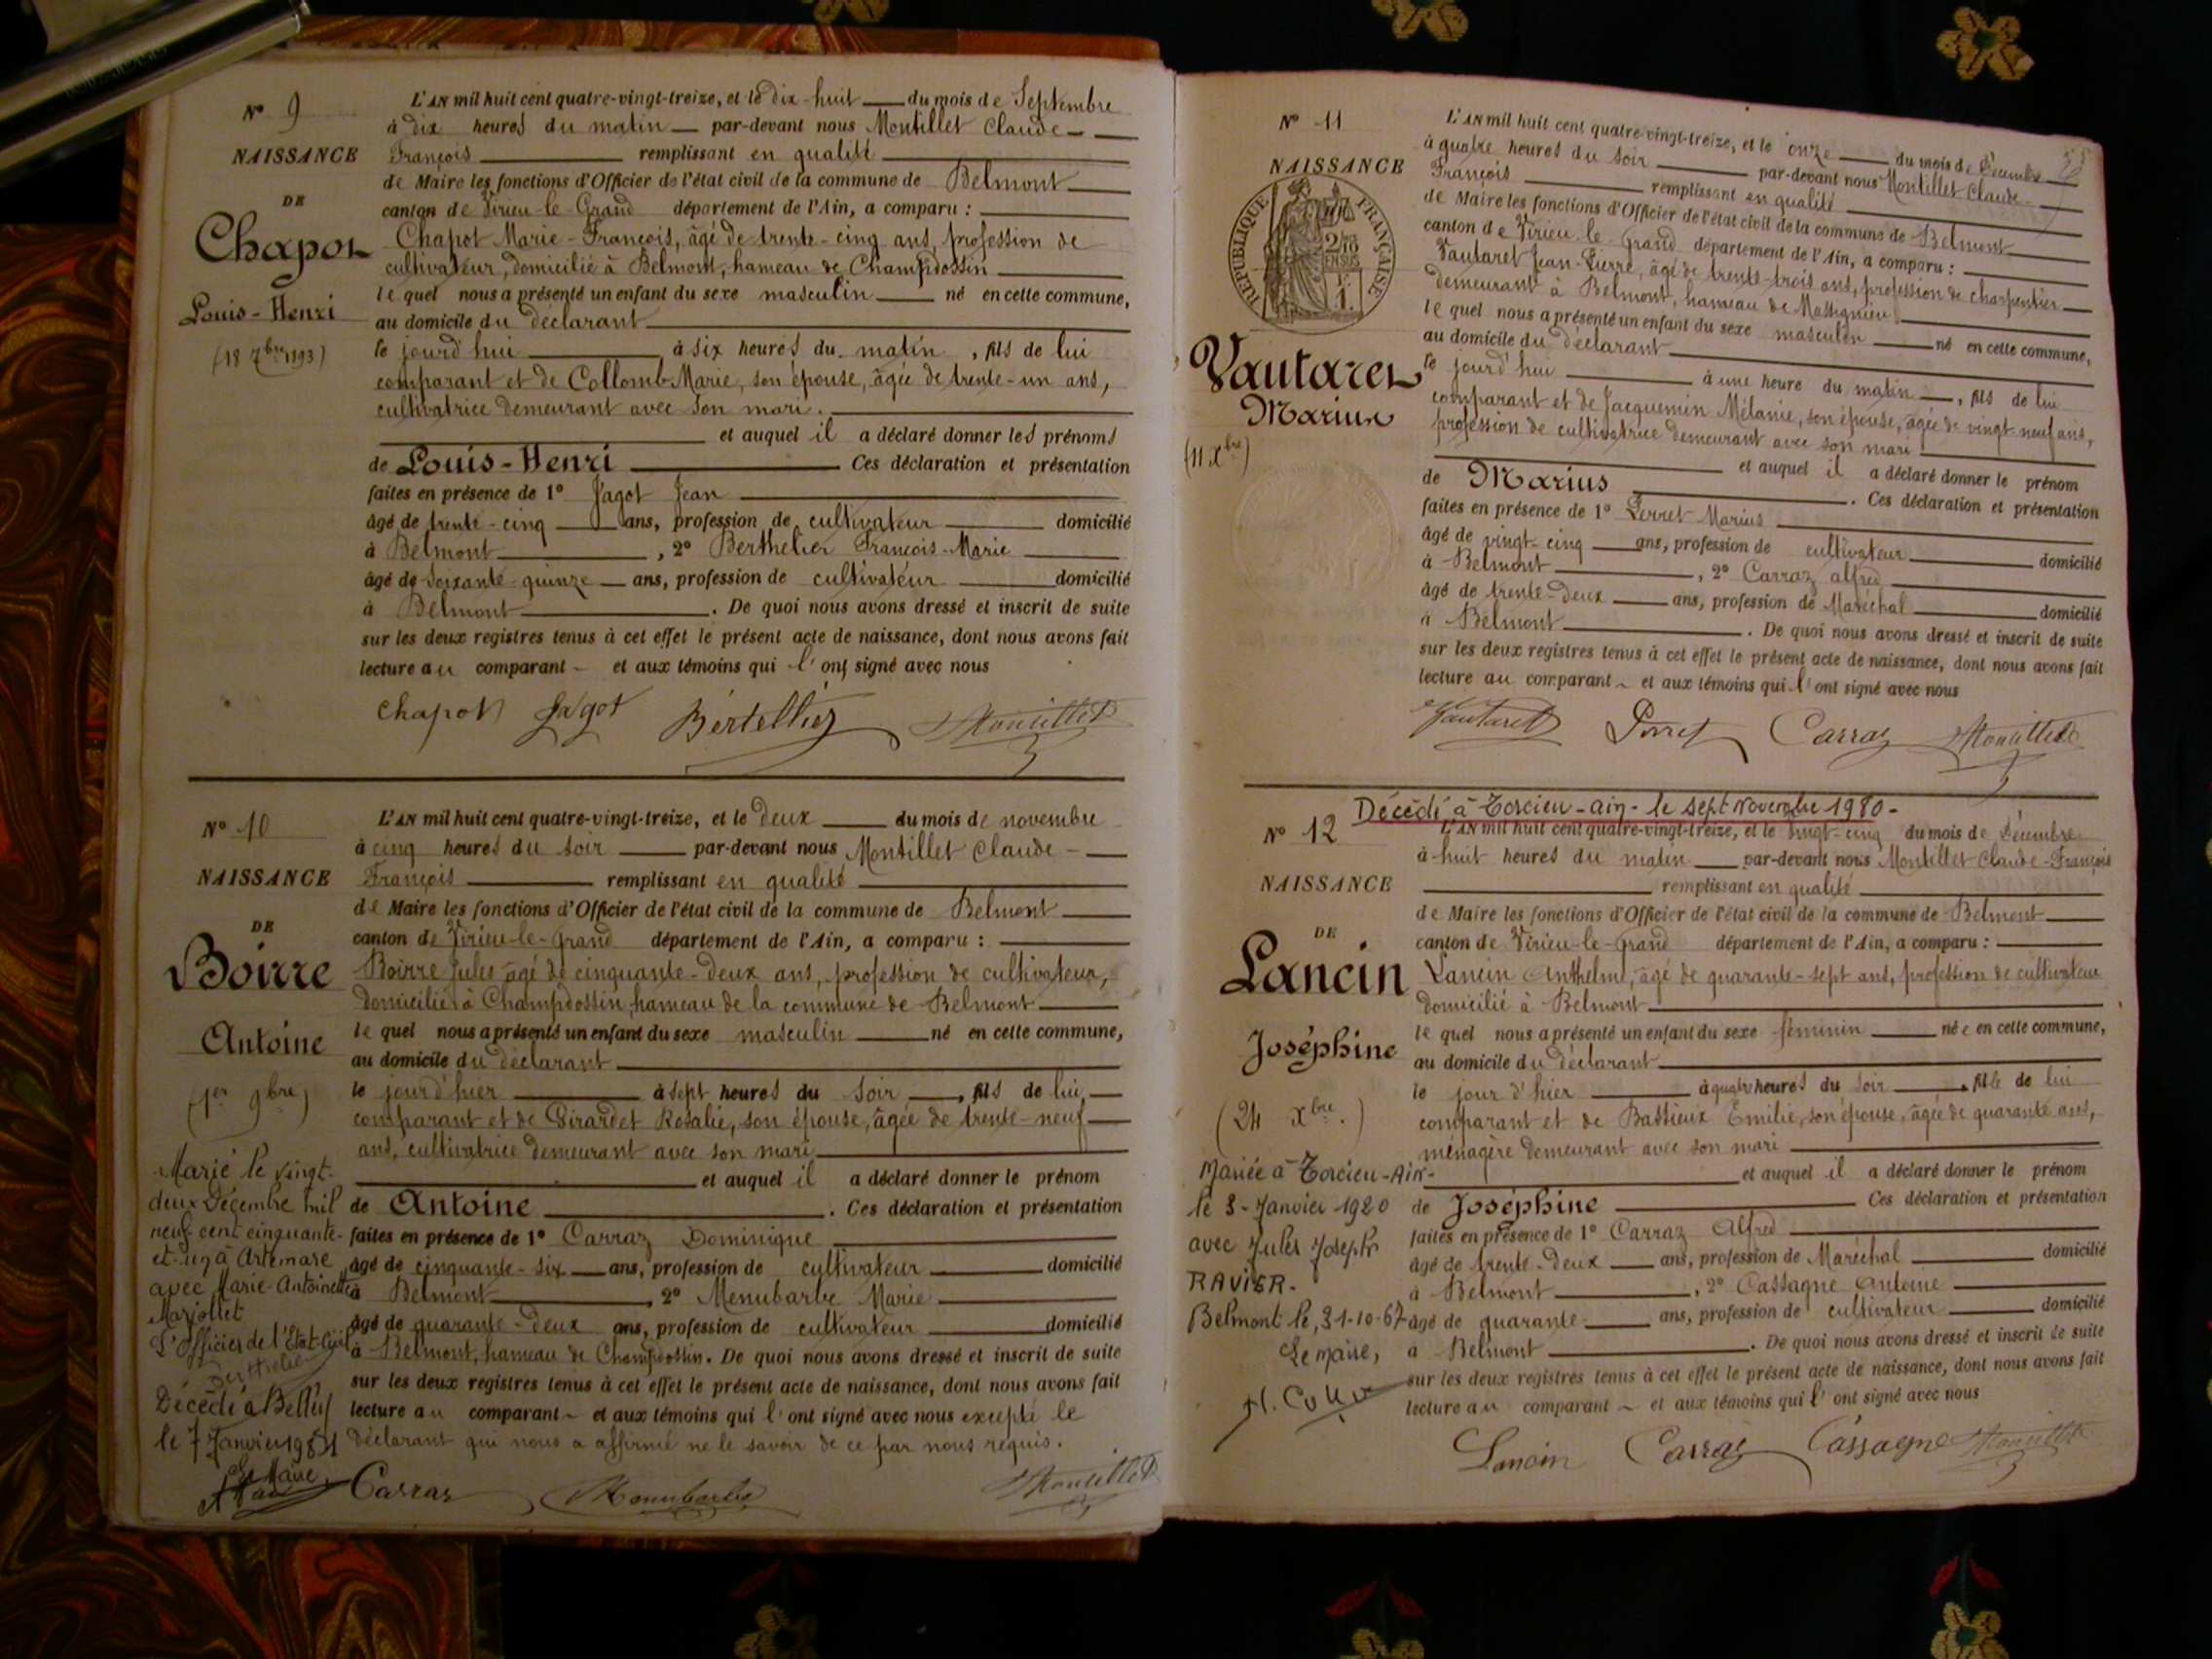 Nº 9
NAISSANCE
DE
Chapot
Louis-Henri
(18 7bre 1893)
L'AN mil huit cent quatre-vingt-treize, et le dix-huit du mois de Septembre
à dix heures du matin par-devant nous Montillet Claude-
François remplissant en qualité
de Maire les fonctions d'Officier de l'état civil de la commune de Belmont
canton de Virieu-le-Grand département de l'Ain, a comparu :
Chapot Marie-François, âgé de trente-cinq ans, profession de
cultivateur, domicilié à Belmont, hameau de Champdossin
lequel nous a présenté un enfant du sexe masculin né en cette commune,
au domicile du déclarant
le jourd'hui à six heures du matin, fils de lui
comparant et de Collomb Marie, son épouse, âgée de trente-un ans,
cultivatrice demeurant avec son mari.
et auquel il a déclaré donner les prénoms
de Louis-Henri Ces déclaration et présentation
faites en présence de 1º Jagot Jean
âgé de trente-cinq ans, profession de cultivateur domicilié
à Belmont, 2º Berthelier François-Marie
âgé de soixante-quinze ans, profession de cultivateur domicilié
à Belmont. De quoi nous avons dressé et inscrit de suite
sur les deux registres tenus à cet effet le présent acte de naissance, dont nous avons fait
lecture au comparant et aux témoins qui l'ont signé avec nous
Chapot Jagot Bertellier Montillet
Nº 10
NAISSANCE
DE
Boirre
Antoine
(1er 9bre)
Marié le vingt-
deux Décembre mil
neuf cent cinquante-
et-un à Artemare
avec Marie-Antoinette
Marjollet
L'Officier de l'Etat-Civil
Décédé à Belley
le 7 Janvier 1981
Le Maire
L'AN mil huit cent quatre-vingt-treize, et le deux du mois de novembre
à cinq heures du soir par-devant nous Montillet Claude-
François remplissant en qualité
de Maire les fonctions d'Officier de l'état civil de la commune de Belmont
canton de Virieu-le-Grand département de l'Ain, a comparu :
Boirre Jules âgé de cinquante-deux ans, profession de cultivateur,
domicilié à Champdossin, hameau de la commune de Belmont
lequel nous a présenté un enfant du sexe masculin né en cette commune,
au domicile du déclarant
le jour d'hier à sept heures du soir, fils de lui
comparant et de Girardet Rosalie, son épouse, âgée de trente-neuf
ans, cultivatrice demeurant avec son mari
et auquel il a déclaré donner le prénom
de Antoine. Ces déclaration et présentation
faites en présence de 1º Carraz Dominique
âgé de cinquante-six ans, profession de cultivateur domicilié
à Belmont, 2º Menubarbe Marie
âgé de quarante-deux ans, profession de cultivateur domicilié
à Belmont, hameau de Champdossin. De quoi nous avons dressé et inscrit de suite
sur les deux registres tenus à cet effet le présent acte de naissance, dont nous avons fait
lecture au comparant et aux témoins qui l'ont signé avec nous excepté le
déclarant qui nous a affirmé ne le savoir de ce par nous requis.
Carraz Menubarbe Montillet
Nº 11
NAISSANCE
RÉPUBLIQUE FRANÇAISE
Vautaret
Marius
(11 Xbre)
L'AN mil huit cent quatre-vingt-treize, et le onze du mois de Décembre
à quatre heures du soir par-devant nous Montillet Claude-
François remplissant en qualité
de Maire les fonctions d'Officier de l'état civil de la commune de Belmont
canton de Virieu-le-Grand département de l'Ain, a comparu :
Vautaret Jean-Pierre, âgé de trente-trois ans, profession de charpentier
demeurant à Belmont, hameau de Massignieu
lequel nous a présenté un enfant du sexe masculin né en cette commune,
au domicile du déclarant
le jourd'hui à une heure du matin, fils de lui
comparant et de Jacquemin Mélanie, son épouse, âgée de vingt-neuf ans,
profession de cultivatrice demeurant avec son mari
et auquel il a déclaré donner le prénom
de Marius. Ces déclaration et présentation
faites en présence de 1º Perret Marius
âgé de vingt-cinq ans, profession de cultivateur domicilié
à Belmont, 2º Carraz alfred
âgé de trente-deux ans, profession de Maréchal domicilié
à Belmont. De quoi nous avons dressé et inscrit de suite
sur les deux registres tenus à cet effet le présent acte de naissance, dont nous avons fait
lecture au comparant et aux témoins qui l'ont signé avec nous
Vautaret Perret Carraz Montillet
Décédé à Torcieu-ain- le sept novembre 1980-
Nº 12
NAISSANCE
DE
Lancin
Joséphine
(24 Xbre.)
Mariée à Torcieu-Ain-
le 3-Janvier 1920
avec Jules Joseph
RAVIER-
Belmont le, 31-10-67
Le maire,
L'AN mil huit cent quatre-vingt-treize, et le vingt-cinq du mois de Décembre
à huit heures du matin par-devant nous Montillet Claude-François
remplissant en qualité
de Maire les fonctions d'Officier de l'état civil de la commune de Belmont
canton de Virieu-le-Grand département de l'Ain, a comparu :
Lancin Anthelme, âgé de quarante-sept ans, profession de cultivateur
domicilié à Belmont
lequel nous a présenté un enfant du sexe féminin née en cette commune,
au domicile du déclarant
le jour d'hier à quatre heures du soir, fille de lui
comparant et de Bassieux Emilie, son épouse, âgée de quarante ans,
ménagère demeurant avec son mari
et auquel il a déclaré donner le prénom
de Joséphine Ces déclaration et présentation
faites en présence de 1º Carraz Alfred
âgé de trente-deux ans, profession de Maréchal domicilié
à Belmont, 2º Cassagne Antoine
âgé de quarante- ans, profession de cultivateur domicilié
à Belmont. De quoi nous avons dressé et inscrit de suite
sur les deux registres tenus à cet effet le présent acte de naissance, dont nous avons fait
lecture au comparant et aux témoins qui l'ont signé avec nous
Lancin Carraz Cassagne Montillet